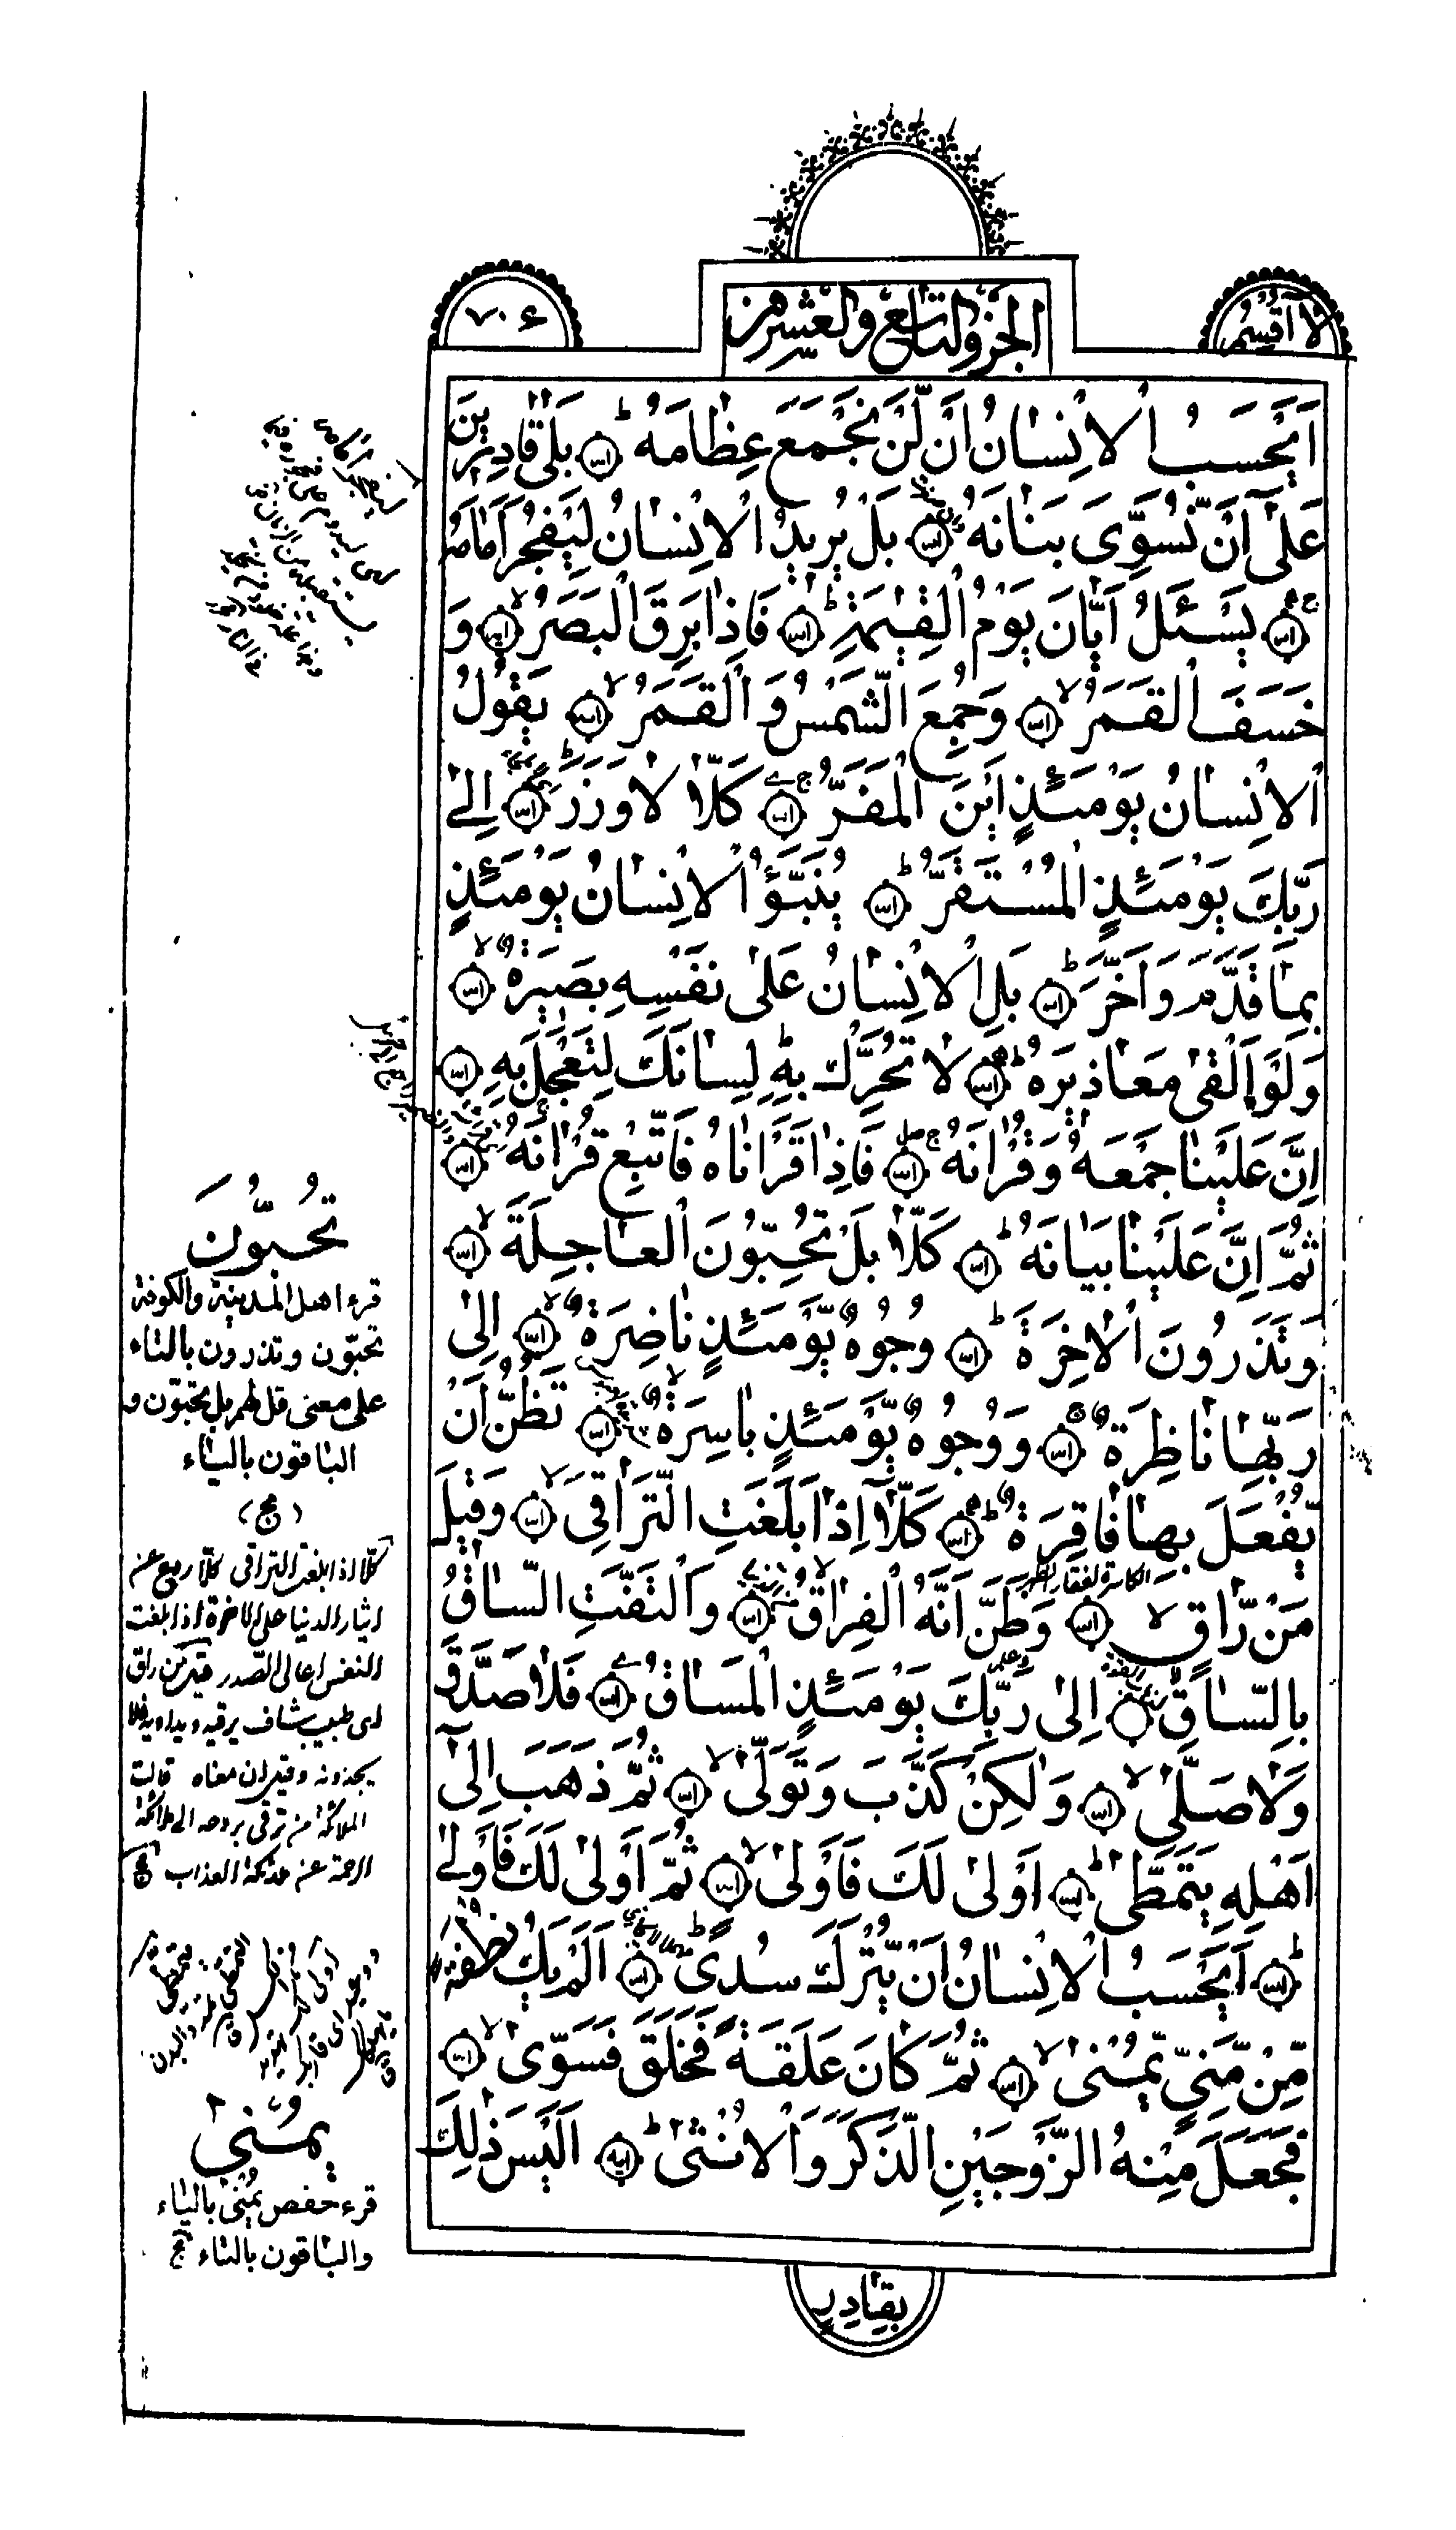 لا اقسم
الجزو التاسع والعشرين
٧٠۶
اَيَحْسَبُ الْاِنْسٰانُ اَنْ لَّنْ نَجْمَعَ عِظٰامَهُ ط بَلىٰ قٰادِرِيْنَ
عَلىٰٓ اَنْ نُّسَوِّىَ بَنٰانَهُ بَلْ يُرِيْدُ الْاِنْسٰانُ لِيَفْجُرَ اَمٰامَهُ
يَسْئَلُ اَيّٰانَ يَوْمُ الْقِيٰمَةِ ط فَاِذٰا بَرِقَ الْبَصَرُ لا وَ
خَسَفَ الْقَمَرُ لا وَجُمِعَ الشَّمْسُ وَ الْقَمَرُ لا يَقُوْلُ
الْاِنْسٰانُ يَوْمَئِذٍ اَيْنَ الْمَفَرُّ ج كَلّٰا لٰا وَزَرَ ط اِلىٰ
رَبِّكَ يَوْمَئِذٍ الْمُسْتَقَرُّ ط يُنَبَّؤُ الْاِنْسٰانُ يَوْمَئِذٍ
بِمٰا قَدَّمَ وَ اَخَّرَ ط بَلِ الْاِنْسٰانُ عَلىٰ نَفْسِهِ بَصِيْرَةٌ لا
وَلَوْ اَلْقىٰ مَعٰاذِيْرَهُ ط لٰا تُحَرِّكْ بِهٖ لِسٰانَكَ لِتَعْجَلَ بِهِ
اِنَّ عَلَيْنٰا جَمْعَهُ وَ قُرْاٰنَهُ ج صلى فَاِذٰا قَرَأْنٰاهُ فَاتَّبِعْ قُرْاٰنَهُ
ثُمَّ اِنَّ عَلَيْنٰا بَيٰانَهُ ط كَلّٰا بَلْ تُحِبُّوْنَ الْعٰاجِلَةَ لا
وَ تَذَرُوْنَ الْاٰخِرَةَ ط وُجُوْهٌ يَّوْمَئِذٍ نٰاضِرَةٌ لا اِلىٰ
رَبِّهٰا نٰاظِرَةٌ ج وَ وُجُوْهٌ يَّوْمَئِذٍ بٰاسِرَةٌ لا تَظُنُّ اَنْ
يُّفْعَلَ بِهٰا فٰاقِرَةٌ ط كَلّٰٓا اِذٰا بَلَغَتِ التَّرٰاقِىَ لا وَ قِيْلَ
مَنْ رّٰاقٍ لا وَ ظَنَّ اَنَّهُ الْفِرٰاقُ لا وَ الْتَفَّتِ السّٰاقُ
بِالسّٰاقِ اِلىٰ رَبِّكَ يَوْمَئِذٍ الْمَسٰاقُ فَلٰا صَدَّقَ
وَلٰا صَلّىٰ لا وَلٰكِنْ كَذَّبَ وَ تَوَلّىٰ لا ثُمَّ ذَهَبَ اِلىٰٓ
اَهْلِهِ يَتَمَطّىٰ ط اَوْلىٰ لَكَ فَاَوْلىٰ لا ثُمَّ اَوْلىٰ لَكَ فَاَوْلىٰ
ط اَيَحْسَبُ الْاِنْسٰانُ اَنْ يُّتْرَكَ سُدًى ط اَلَمْ يَكُ نُطْفَةً
مِّنْ مَّنِيٍّ يُّمْنىٰ لا ثُمَّ كٰانَ عَلَقَةً فَخَلَقَ فَسَوّىٰ لا
فَجَعَلَ مِنْهُ الزَّوْجَيْنِ الذَّكَرَ وَ الْاُنْثىٰ ط اَلَيْسَ ذٰلِكَ
بِقٰادِرٍ
تُحِبُّوْنَ
قرء اهل المدينة والكوفة
تحبّون وتذرون بالتاء
على معنى قل لهم بل تحبّون و
الباقون بالياء
(مج)
كلّا اذا بلغت التراقى كلّا ردع عن
ايثار الدنيا على الاخرة اذا بلغت
النفس اعالى الصّدر وقيل من راق
اى طبيب شاف يرقيه ويداويه فلا
يجدونه وقيل ان معناه قالت
الملائكة من ترقى بروحه املائكة
الرحمة عن ملائكة العذاب مج
يُمْنىٰ
قرء حفص يُمْنىٰ بالياء
والباقون بالتاء مج